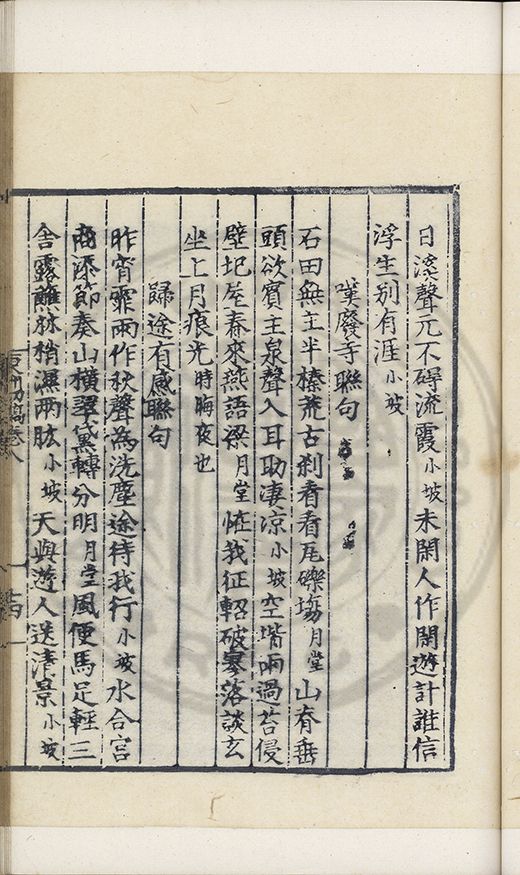 日溪聲元不碍流霞小坡未閑人作閑遊計誰信
浮生别有涯小坡
嘆廢寺聯句
石田無主半榛荒古刹看看瓦礫塲月堂山脊垂
頭欲賓主泉聲入耳助凄凉小坡空堦雨過苔侵
壁圮屋春來燕語梁月堂恠我征軺破寥落談玄
坐上月痕光時晦夜也
歸途有感聯句
昨宵霏雨作秋聲為洗塵途待我行小坡水合宫
商添節奏山横翠黛轉分明月堂風便馬足輕三
舍露蘸林梢濕兩肱小坡天與遊人送清景小坡